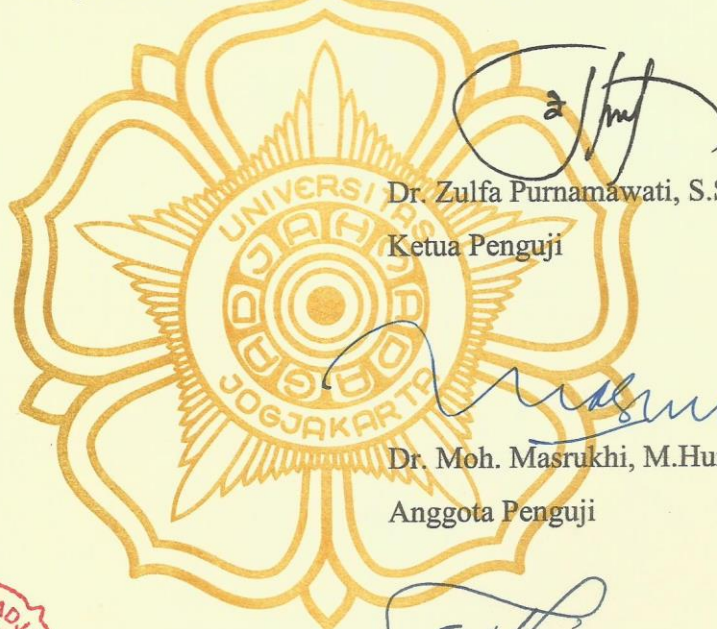 UNIVERSITAS
GADJAH MADA
JOGJAKARTA
Dr. Zulfa Purnamawati, S.S
Ketua Penguji
Dr. Moh. Masrukhi, M.Hu
Anggota Penguji
ADJ